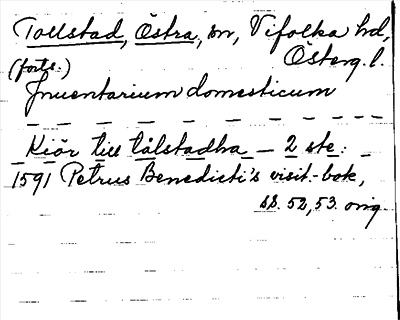 Tollstad, Östra, sn, Vifolka hd,
Österg. l.
(forts.)
Inventarium domesticum
Kiör till tålstadha – 2 ste:
1591 Petrus Benedicti's visit.-bok,
ss. 52, 53. orig.